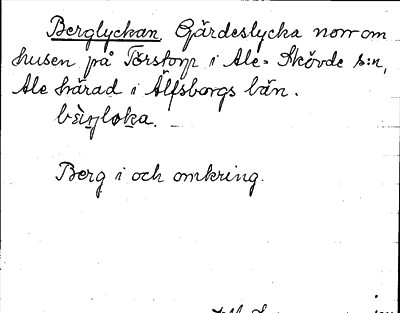 Berglyckan Gärdeslycka norr om
husen på Torstorp i Ale-Skövde s:n,
Ale härad i Älfsborgs län.
Berg i och omkring.